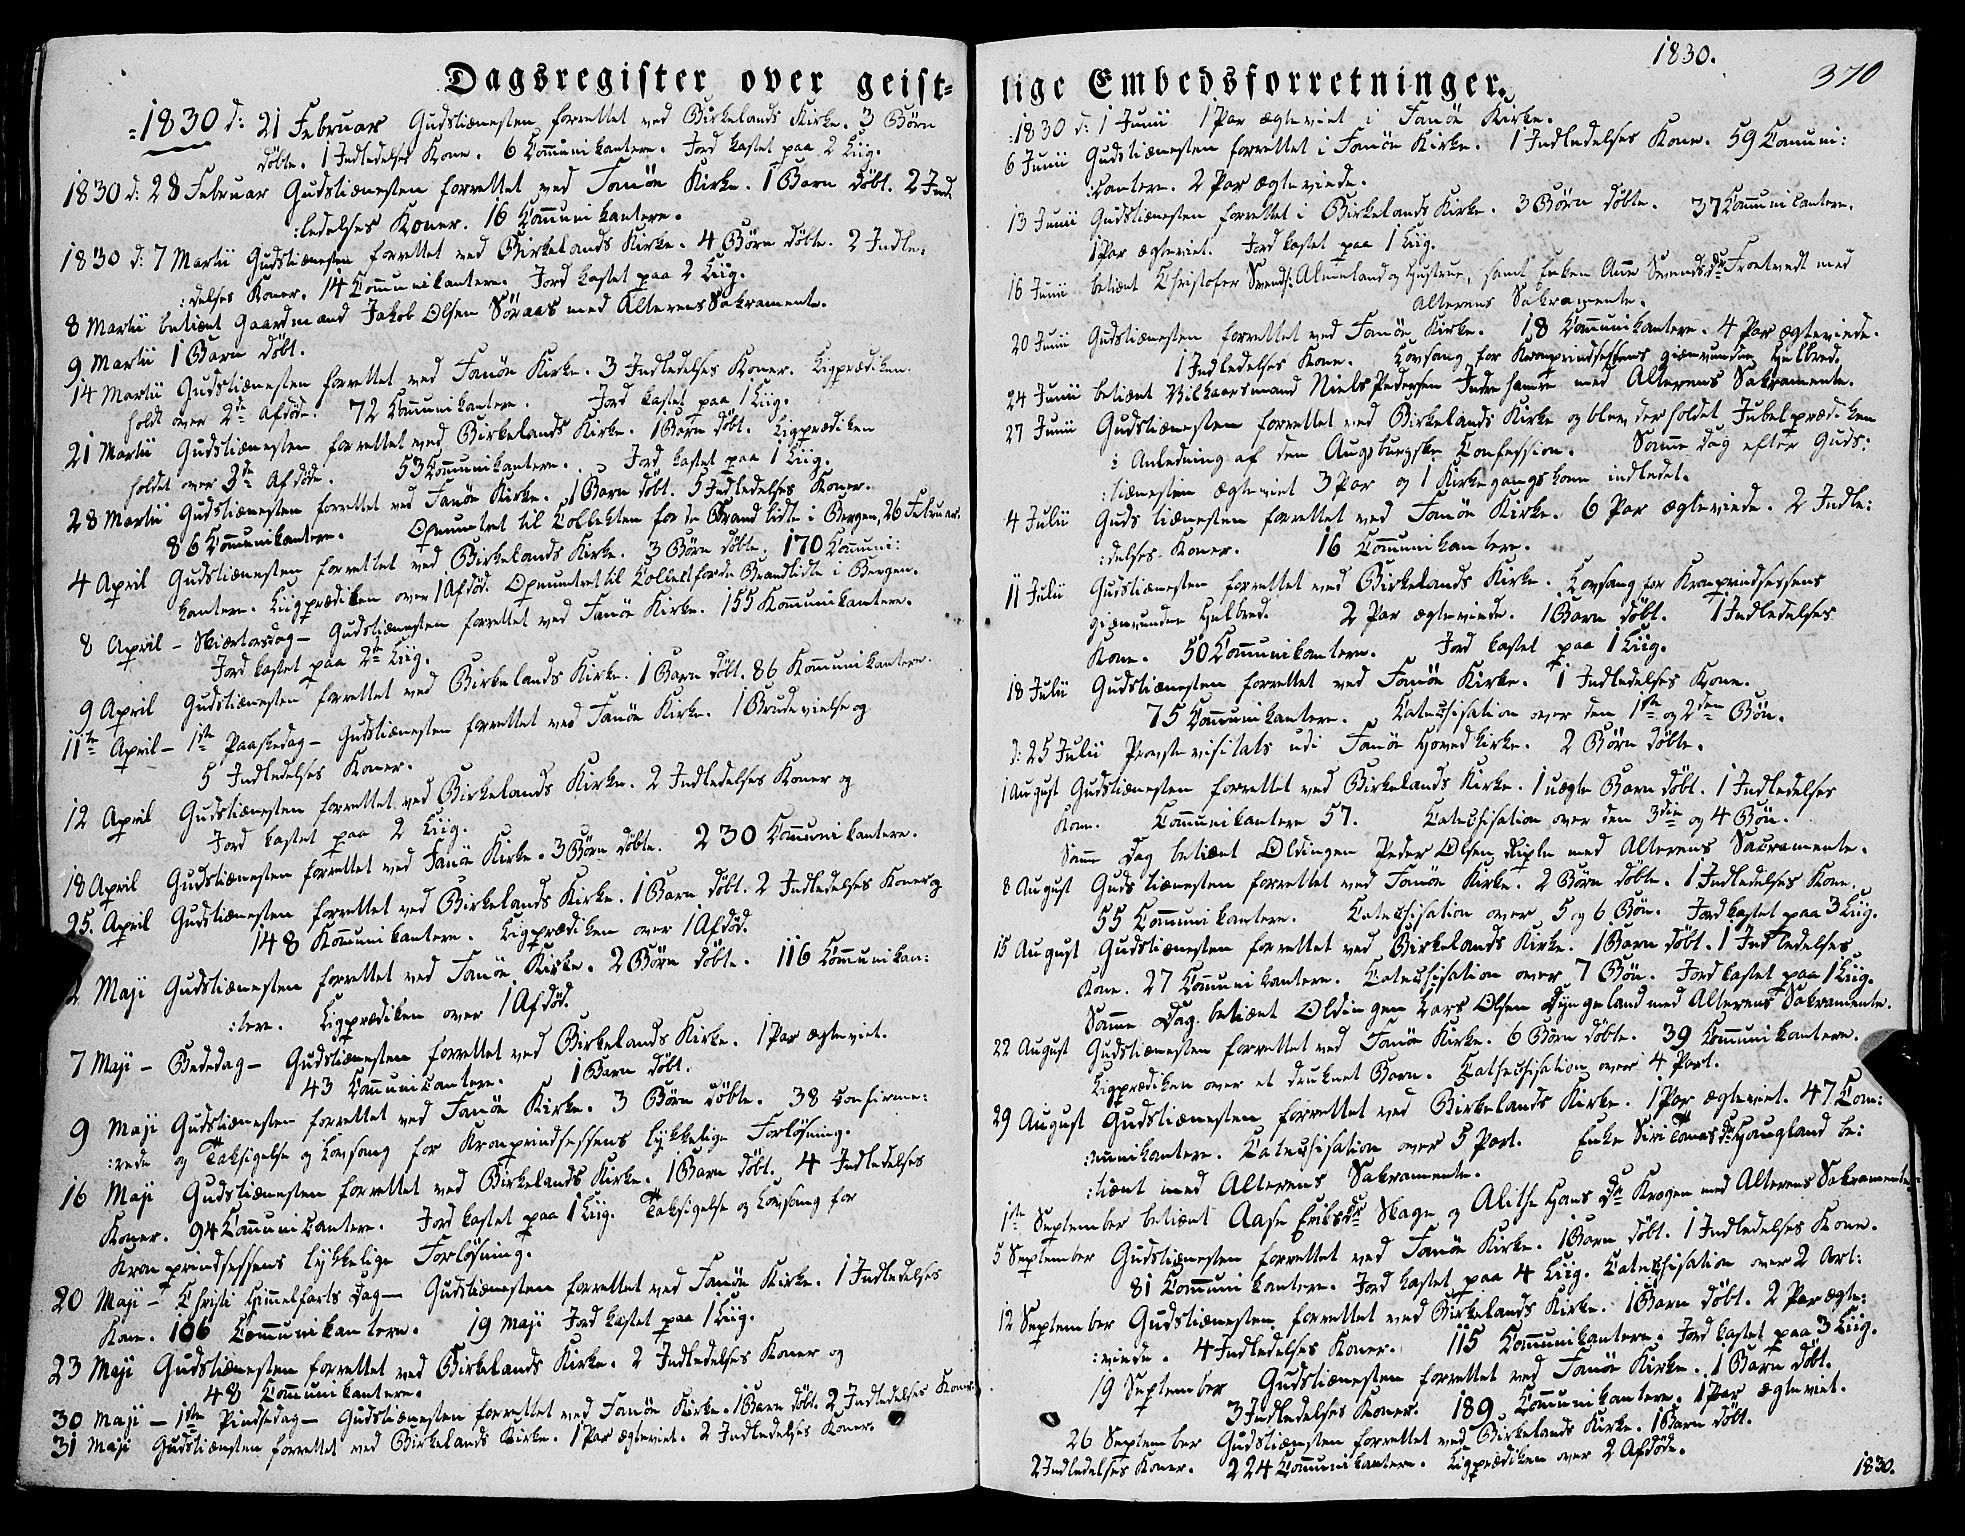 Dagsregister over geist=
:1830 d: 21 Februar Gudstiænesten forrettet ved Birkelands Kirke. 3 Børn
døbte. 1 Indledelses Kone. 6 Communikantere. Jord kastet paa 2 Liig.
1830 d: 28 Februar Gudstiænesten forrettet ved Fanöe Kirke. 1 Barn døbt. 2 Ind:
:ledelses Koner. 16 Communikantere.
1830 d: 7 Martii Gudstiænesten forrettet ved Birkelands Kirke. 4 Børn døbte. 2 Indle:
:delses Koner. 14 Communikantere. Jord kastet paa 2 Liig.
8 Martii betient Gaardmand Jakob Olsen Söraas med Alterens Sakramente.
9 Martii 1 Barn døbt.
14 Martii Gudstiænesten forrettet ved Fanöe Kirke. 3 Indledelses Koner. Ligprædiken
holdt over 2de Afdöde. 72 Communikantere. Jord kastet paa 1 Liig.
21 Martii Gudstiænesten forrettet ved Birkelands Kirke. 1 Barn døbt. Ligprædiken
holdet over 3de Afdöde. 53 Communikantere. Jord kastet paa 1 Liig.
28 Martii Gudstiænesten forrettet ved Fanöe Kirke. 1 Barn døbt. 5 Indledelses Koner.
86 Communikantere. Opmuntret til Collekten for de Brandlidte i Bergen, 26 Februar.
4 April Gudstiænesten forrettet ved Birkelands Kirke. 3 Børn døbte. 170 Communi:
kantere. Liigprædiken over 1 Afdöd. Opmuntret til Collekt for de Brandlidte i Bergen.
8 April – Skiærtorsdag – Gudstiænesten forrettet ved Fanöe Kirke. 155 Kommunikantere.
Jord kastet paa 2de Liig.
9 April Gudstiænesten forrettet ved Birkelands Kirke. 1 Barn døbt. 86 Kommunikantere.
11te April – 1ste Paaskedag – Gudstiænesten forrettet ved Fanöe Kirke. 1 Brudevielse og
5 Indledelses Koner.
12 April Gudstiænesten forrettet ved Birkelands Kirke. 2 Indledelses Koner og
Jord kastet paa 2 Liig.
18 April Gudstiænesten forrettet ved Fanöe Kirke. 3 Børn døbte. 230 Communikantere.
25. April Gudstiænesten forrettet ved Birkelands Kirke. 1 Barn døbt. 2 Indledelses Koner og
148 Kommunikantere. Ligprædiken over 1 Afdöd.
2 Maji Gudstiænesten forrettet ved Fanöe Kirke. 2 Börn døbte. 116 Communikan:
:tere. Ligprædiken over 1 Afdöd.
7 Maji – Bededag – Gudstiænesten forrettet ved Birkelands Kirke. 1 Par ægteviet.
43 Communicantere. 1 Barn døbt.
9 Maji Gudstiænesten forrettet ved Fanöe Kirke. 3 Börn døbte. 38 Confirme:
:rede og Taksigelse og Lovsang for Kronprindsessens lykkelige Forløsning.
16 Maji Gudstiænesten forrettet ved Birkelands Kirke. 1 Barn døbt. 4 Indledelses
Koner. 94 Communicantere. Jord kastet paa 1 Liig. Taksigelse og Lovsang for
Kronprindsessens lykkelige Forløsning.
20 Maji – Christi Himmelfarts Dag – Gudstiænesten forrettet ved Fanöe Kirke. 1 Indledelses
Kone. 106 Communikantere. 19 Maji Jord kastet paa 1 Liig.
23 Maji Gudstiænesten forrettet ved Birkelands Kirke. 2 Indledelses Koner og
48 Communikantere.
30 Maji – 1ste Pindsedag – Gudstiænesten forrettet ved Fanöe Kirke. 1 Barn døbt. 2 Indledelses Koner
31 Maji Gudstiænesten forrettet ved Birkelands Kirke. 1 Par ægteviet. 2 Indledelses Koner.
1830.
370
lige Embedsforretninger.
:1830 d: 1 Junii 1 Par ægteviet i Fanöe Kirke.
6 Junii Gudstiænesten forrettet i Fanöe Kirke. 1 Indledelses Kone. 59 Communi:
:cantere. 2 Par ægteviede.
13 Junii Gudstiænesten forrettet i Birkelands Kirke. 3 Börn døbte. 37 Communicantere.
1 Par ægteviet. Jord kastet paa 1 Liig.
16 Junii betient Christofer Svends: Alminland og Hustrue, samt Enken Anne Svendsdr Troetvedt med
Alterens Sakramente.
20 Junii Gudstiænesten forrettet ved Fanöe Kirke. 18 Communikantere. 4 Par ægteviede.
1 Indledelses Kone. Lovsang for Kronprindsessens gienvundne Helbred.
24 Junii betient Vilkaarsmand Niels Pedersen Indre Hamre med Alterens Sakramente.
27 Junii Gudstiænesten forrettet ved Birkelands Kirke og blev der holdet Jubelprædiken
i Anledning af den Augsburgske Confession. Samme Dag efter Guds:
:tiænesten ægteviet 3 Par og 1 Kirkegangskone indledet.
4 Julii Gudstiænesten forrettet ved Fanöe Kirke. 6 Par ægteviede. 2 Indle:
:delses Koner. 16 Communikantere.
11 Julii Gudstiænesten forrettet ved Birkelands Kirke. Lovsang for Kronprindsessens
gienvundne Helbred. 2 Par ægteviede. 1 Barn døbt. 1 Indledelses
Kone. 50 Communikantere. Jord kastet paa 1 Liig.
18 Julii Gudstiænesten forrettet ved Fanöe Kirke. 1 Indledelses Kone.
75 Communikantere. Catechisation over den 1ste og 2den Bön.
d: 25 Julii Provstevisitats udi Fanöe Hovedkirke. 2 Börn døbte.
1 August Gudstiænesten forrettet ved Birkelands Kirke. 1 uægte Barn døbt. 1 Indledelses
Kone. Communikantere 57. Catechisation over den 3die og 4 Bön.
Samme Dag betient Oldingen Peder Olsen Riple med Alterens Sacramente.
8 August Gudstiænesten forrettet ved Fanöe Kirke. 2 Börn døbte. 1 Indledelses Kone.
55 Communikantere. Catechisation over 5 og 6 Bön. Jord kastet paa 3 Liig.
15 August Gudstiænesten forrettet ved Birkelands Kirke. 1 Barn døbt. 1 Indledelses
Kone. 27 Communikantere. Catechisation over 7 Bön. Jord kastet paa 1 Liig.
Samme Dag betient Oldingen Lars Olsen Dyngeland med Alterens Sakramente.
22 August Gudstiænesten forrettet ved Fanöe Kirke. 6 Börn døbte. 39 Communikantere.
Ligprædiken over et druknet Barn. Catechisation over 4 Part.
29 August Gudstiænesten forrettet ved Birkelands Kirke. 1 Par ægteviet. 47 Com:
:munikantere. Catechisation over 5 Part. Enke Siri Tomasdr Haugland be:
:tient med Alterens Sakramente.
1ste September betient Aase Eriksdr Skage og Alithe Hansdr Krogen med Alterens Sakramente.
5 September Gudstiænesten forrettet ved Fanöe Kirke. 1 Barn døbt. 1 Indledelses Kone.
81 Communikantere. Jord kastet paa 4 Liig. Catechisation over 2 Art:
12 September Gudstiænesten forrettet ved Birkelands Kirke. 1 Barn døbt. 2 Par ægte:
:viede. 4 Indledelses Koner. 115 Communikantere. Jord kastet paa 3 Liig.
19 September Gudstiænesten forrettet ved Fanöe Kirke. 1 Barn døbt.
3 Indledelses Koner. 189 Communikantere. 1 Par ægteviet.
26 September Gudstiænesten forrettet ved Birkelands Kirke. 1 Barn døbt.
2 Indledelses Koner. 224 Communikantere. Ligprædiken over 2 Afdöde.
1830.